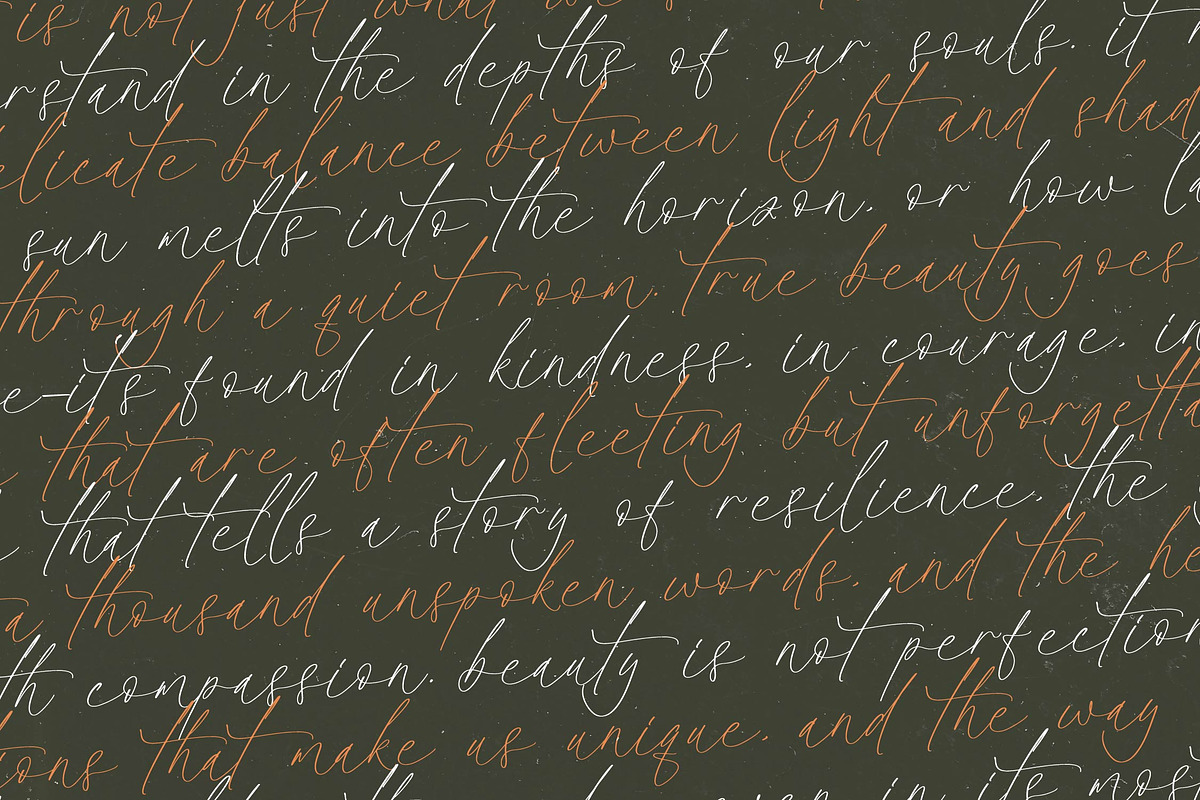 is not just what we
rstand in the depths of our souls. it
elicate balance between light and shad
sun melts into the horizon, or how la
through a quiet room. true beauty goes
e—it's found in kindness, in courage, in
that are often fleeting but unforgetta
that tells a story of resilience, the
a thousand unspoken words, and the he
th compassion. beauty is not perfection
ions that make us unique, and the way
in its most